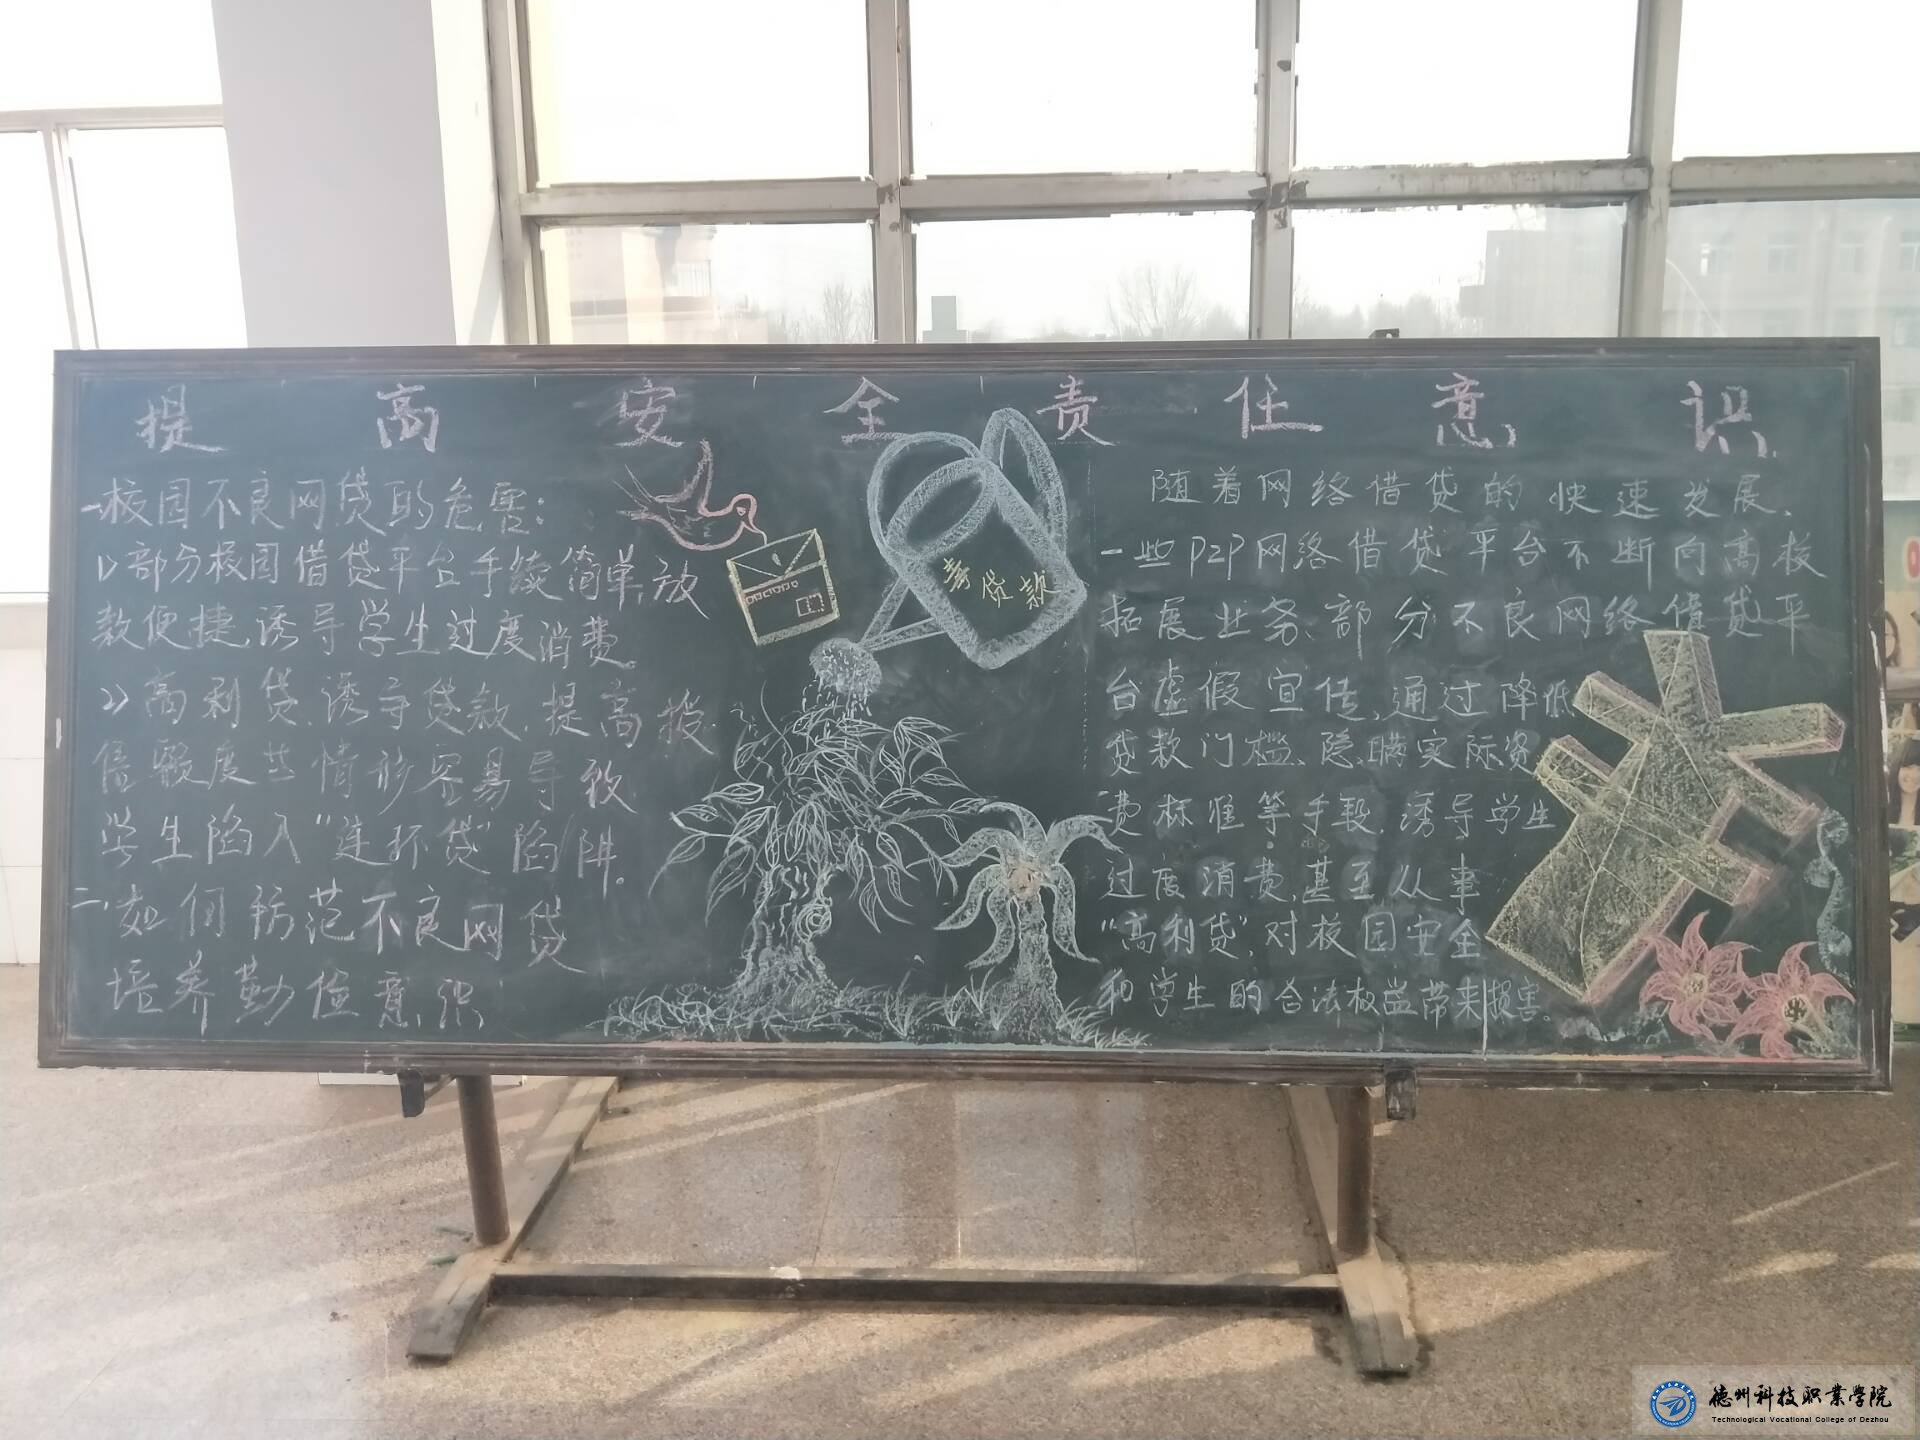 提高安全责任意识
一、校园不良网贷的危害:
1)部分校园借贷平台手续简单,放
款便捷,诱导学生过度消费。
2)高利贷、诱导贷款、提高授
信额度等情形容易导致
学生陷入“连环贷”陷阱。
二、如何防范不良网贷
培养勤俭意识
贷款
随着网络借贷的快速发展、
一些P2P网络借贷平台不断向高校
拓展业务、部分不良网络借贷平
台虚假宣传、通过降低
贷款门槛、隐瞒实际资
费标准等手段,诱导学生
过度消费,甚至从事
“高利贷”,对校园安全
和学生的合法权益带来损害。
德州科技职业学院
Technological Vocational College of Dezhou